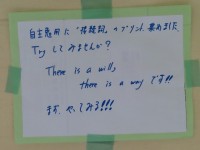 自主勉用に "接続詞" のプリント、集めました
Try してみませんか?
There is a will,
there is a way です!!
まず、やってみる!!!